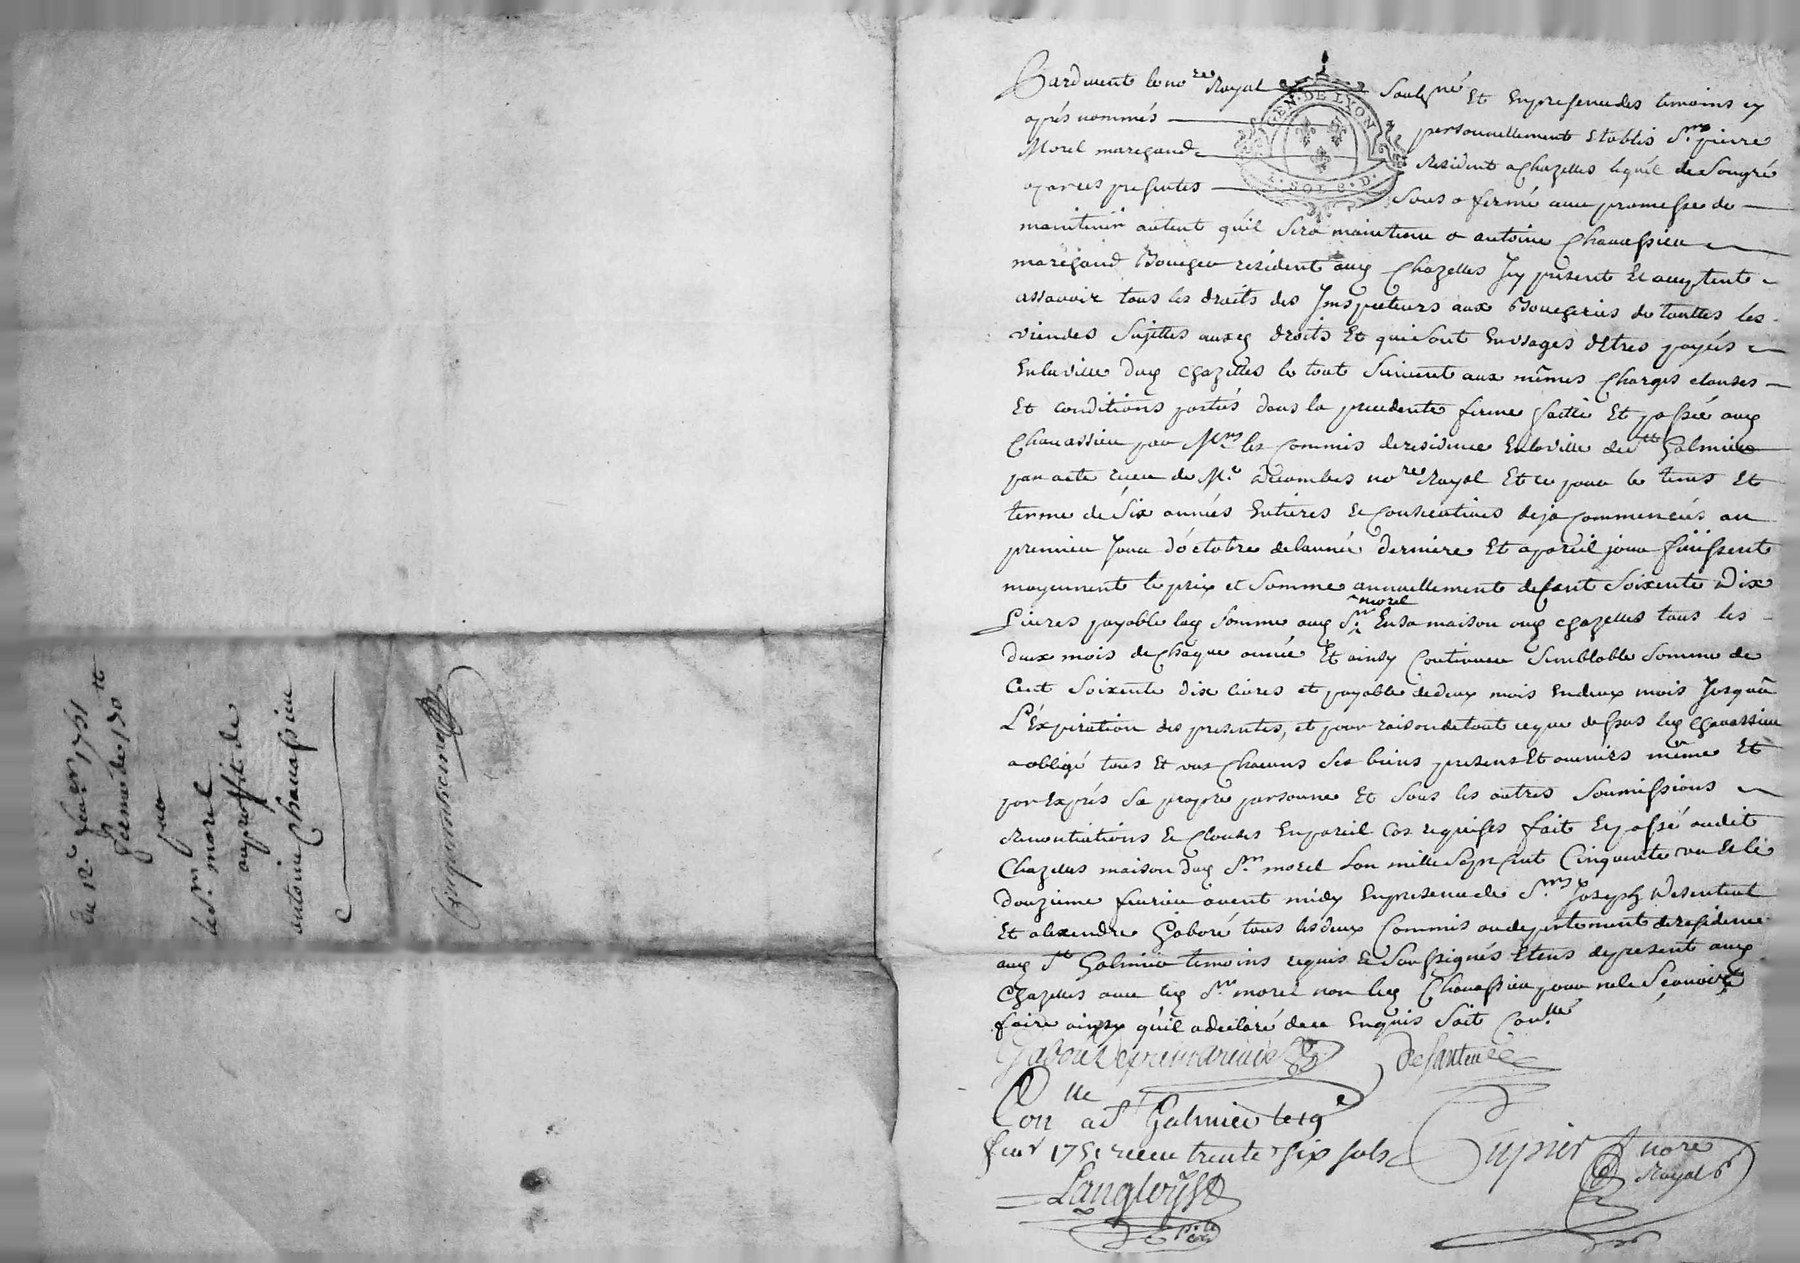 Du 12e fevrier 1751
ferme de 170 tt
par
le Sr. morel
au proffit de
antoine Chauassieu
Pardevant le nore Royal Soubsné Et En presence des temoins cy
aprés nommés personnellement Etablis Sr. pierre
Morel marchand resident a Chazelles lequel de Son gré
a par ces presentes Sous afermé avec promesse de
maintenir autent qu'il Sera maintenu a antoine Chauassieu
marchand Boucher resident aud Chazelles Icy present Et acceptent
assavoir tous les droits des Inspecteurs aux Boucheries de touttes les
viendes Sujettes auxd droits Et qui Sont En usages d'Etres payés
En la ville dud Chazelles le tout Suivent aux mêmes Charges clauses
Et conditions portés dans la precedente ferme faitte Et passée aud
Chauassieu par Mrs les Commis de residence En la ville de St Galmier
par acte receu de Me Decombes nore Royal Et ce pour le tems Et
terme de Six années Entieres Et Consecutives deja Commencés au
premier Jour d'octobre de l'année derniere Et apareil jour finissent
moyennent le prix et Somme annuellement de Cent Soixente Dix
Livres payable lad Somme aud Sr. morel En Sa maison aud Chazelles tous les
deux mois de Chaque année Et ainsy Continuer Semblable Somme de
Cent Soixente dix livres et payable de deux mois En deux mois Jusqu'a
L'Expiration des presentes, et pour raison de tout ce que dessus led Chauassieu
a obligé tous Et uns Chacuns Ses biens presens Et avenirs même Et
par Exprés Sa propre personne Et Sous les autres Soumissions
Renontiations Et Clauses En pareil Cas requises fait Et passé audit
Chazelles maison dud Sr. morel L'an mille Sept Cent Cinquente un Et le
douzieme fevrier avent midy En presence de Srs Joseph Desenteul
Et alexendre Gaboré tous les deux Commis au departement de residence
aud St Galmier temoins requis Et Soussignés Etens de present aud
Chazelles avec led Sr morel non led Chauassieu pour ne le Sçavoir
faire ainsy qu'il a declaré de ce Enquis Soit Conlle
De Santeul
Conlle a St Galmier le 19e
fevr 1751 receu trente Six sols
Langloys
Cupier nore
Royal